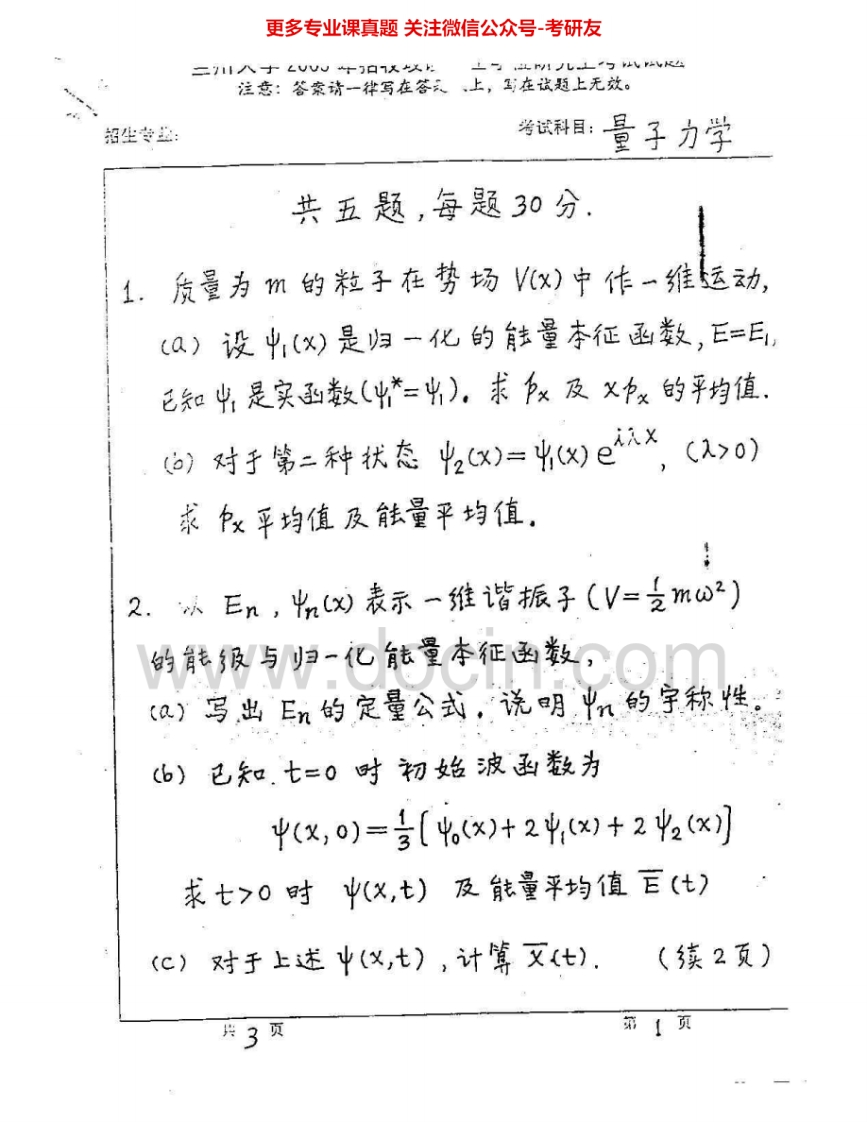 更多专业课真题 关注微信公众号-考研友
注意：答案请一律写在答 上，写在试题上无效。
招生专业:
考试科目: 量子力学
共五题,每题30分.
1. 质量为 m 的粒子在势场 V(x) 中作一维运动,
(a) 设 ψ₁(x) 是归一化的能量本征函数, E=E₁,
已知 ψ₁ 是实函数(ψ₁*=ψ₁). 求 pₓ 及 xpₓ 的平均值.
(b) 对于第二种状态 ψ₂(x)=ψ₁(x)e^{iλx}, (λ>0)
求 pₓ 平均值及能量平均值.
2. 以 Eₙ, ψₙ(x) 表示一维谐振子 (V=½mω²)
的能级与归一化能量本征函数,
www.docin.com
(a) 写出 Eₙ 的定量公式. 说明 ψₙ 的宇称性。
(b) 已知 t=0 时初始波函数为
ψ(x,0)=⅓[ψ₀(x)+2ψ₁(x)+2ψ₂(x)]
求 t>0 时 ψ(x,t) 及能量平均值 E̅(t)
(c) 对于上述 ψ(x,t), 计算 x̅(t). (续2页)
共 3 页 第 1 页